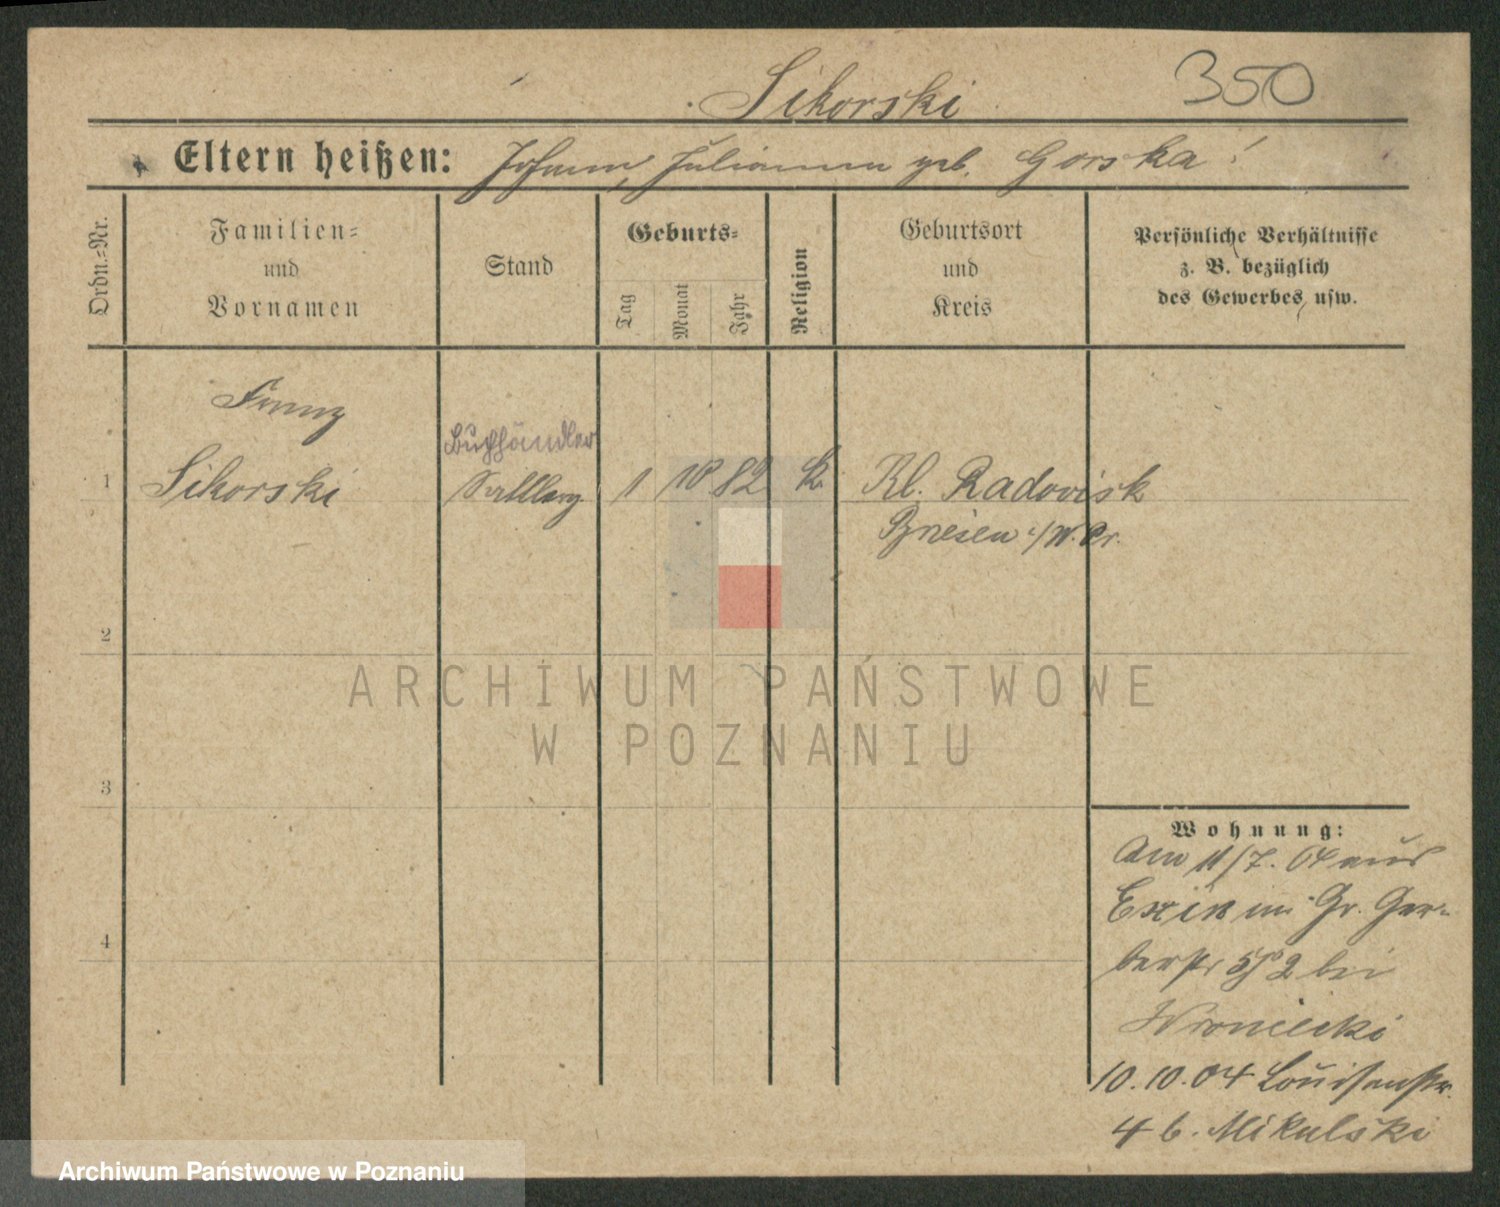 Sikorski
350
Eltern heißen: Johann, Julianna geb. Gorska
Ordn.-Nr.
Familien=
und
Vornamen
Stand
Geburts=
Tag
Monat
Jahr
Religion
Geburtsort
und
Kreis
Persönliche Verhältnisse
z. B. bezüglich
des Gewerbes usw.
Franz
Buchhändler
1 Sikorski 1 10 82 k. Kl. Radovisk
Briesen i/W.Pr.
2
3
4
Wohnung:
Am 11/7. 04 aus
Exin in Gr. Ger-
berstr 2 bei
Wroniecki
10.10.04 Louisenstr.
4 b. Mikulski
ARCHIWUM PAŃSTWOWE
W POZNANIU
Archiwum Państwowe w Poznaniu